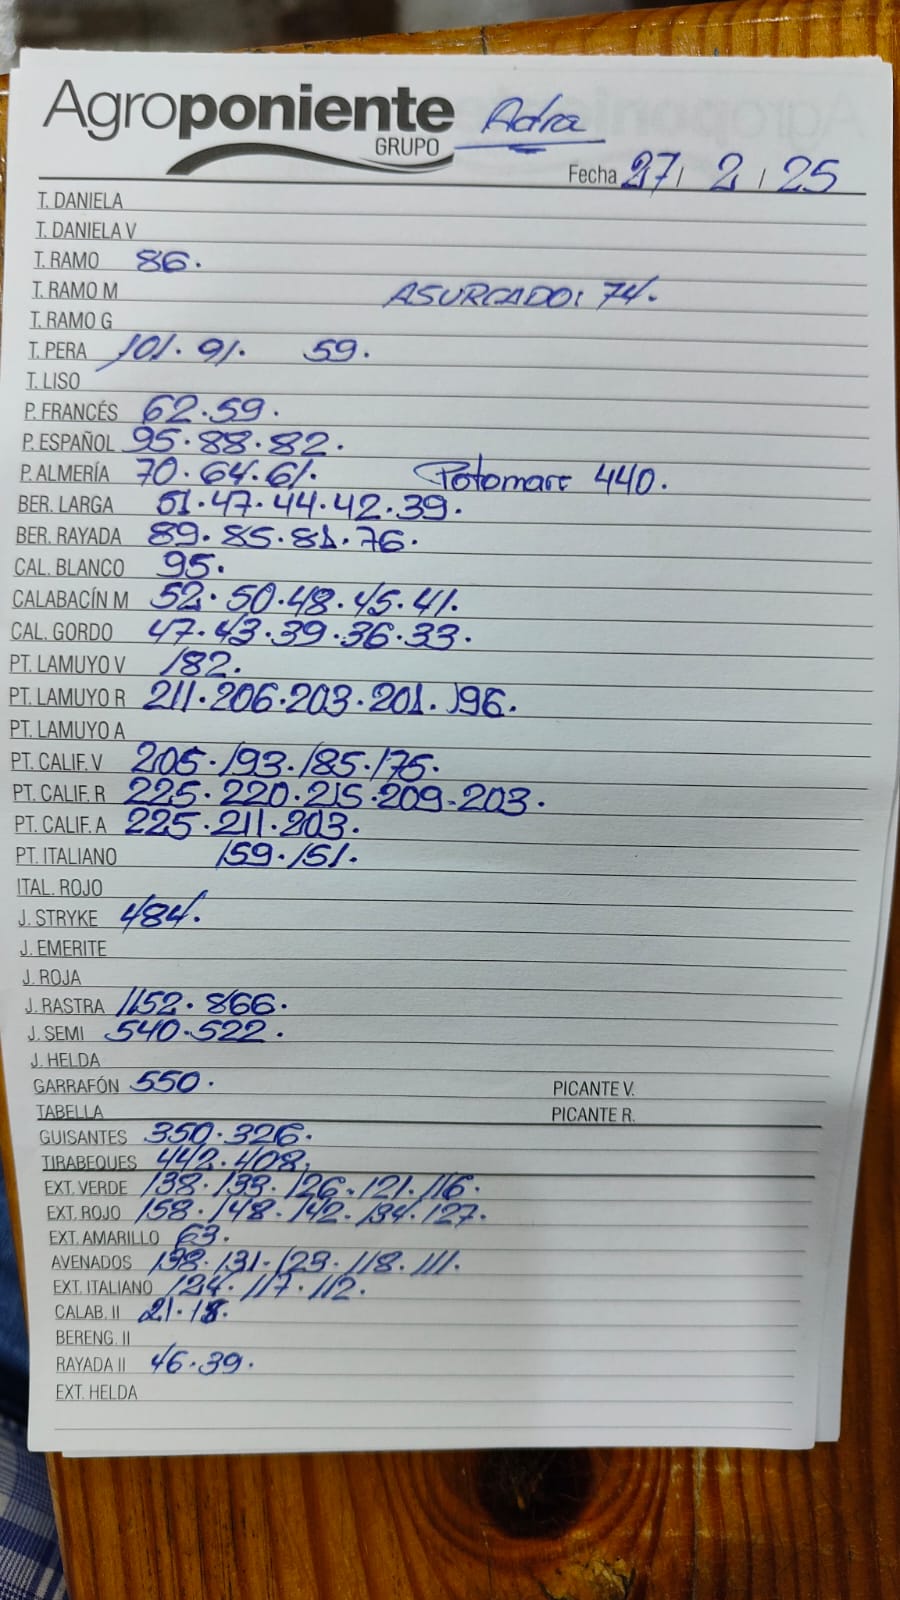 Agroponiente Adra
GRUPO
Fecha 27 / 2 / 25
T. DANIELA
T. DANIELA V
T. RAMO 86.
T. RAMO M ASURCADO: 74.
T. RAMO G
T. PERA 101. 91. 59.
T. LISO
P. FRANCÉS 62.59.
P. ESPAÑOL 95.88.82.
P. ALMERÍA 70.64.61. Potomarc 440.
BER. LARGA 51.47.44.42.39.
BER. RAYADA 89.85.81.76.
CAL. BLANCO 95.
CALABACÍN M 52.50.48.45.41.
CAL. GORDO 47.43.39.36.33.
PT. LAMUYO V 182.
PT. LAMUYO R 211.206.203.201.196.
PT. LAMUYO A
PT. CALIF. V 205.193.185.175.
PT. CALIF. R 225.220.215.209-203.
PT. CALIF. A 225.211.203.
PT. ITALIANO 159.151.
ITAL. ROJO
J. STRYKE 484.
J. EMERITE
J. ROJA
J. RASTRA 1152.866.
J. SEMI 540.522.
J. HELDA
GARRAFÓN 550. PICANTE V.
TABELLA PICANTE R.
GUISANTES 350.326.
TIRABEQUES 442.408.
EXT. VERDE 138.133.126.121.116.
EXT. ROJO 158.148.142.134.127.
EXT. AMARILLO 63.
AVENADOS 138.131.123.118.111.
EXT. ITALIANO 124.117.112.
CALAB. II 21.18.
BERENG. II
RAYADA II 46.39.
EXT. HELDA